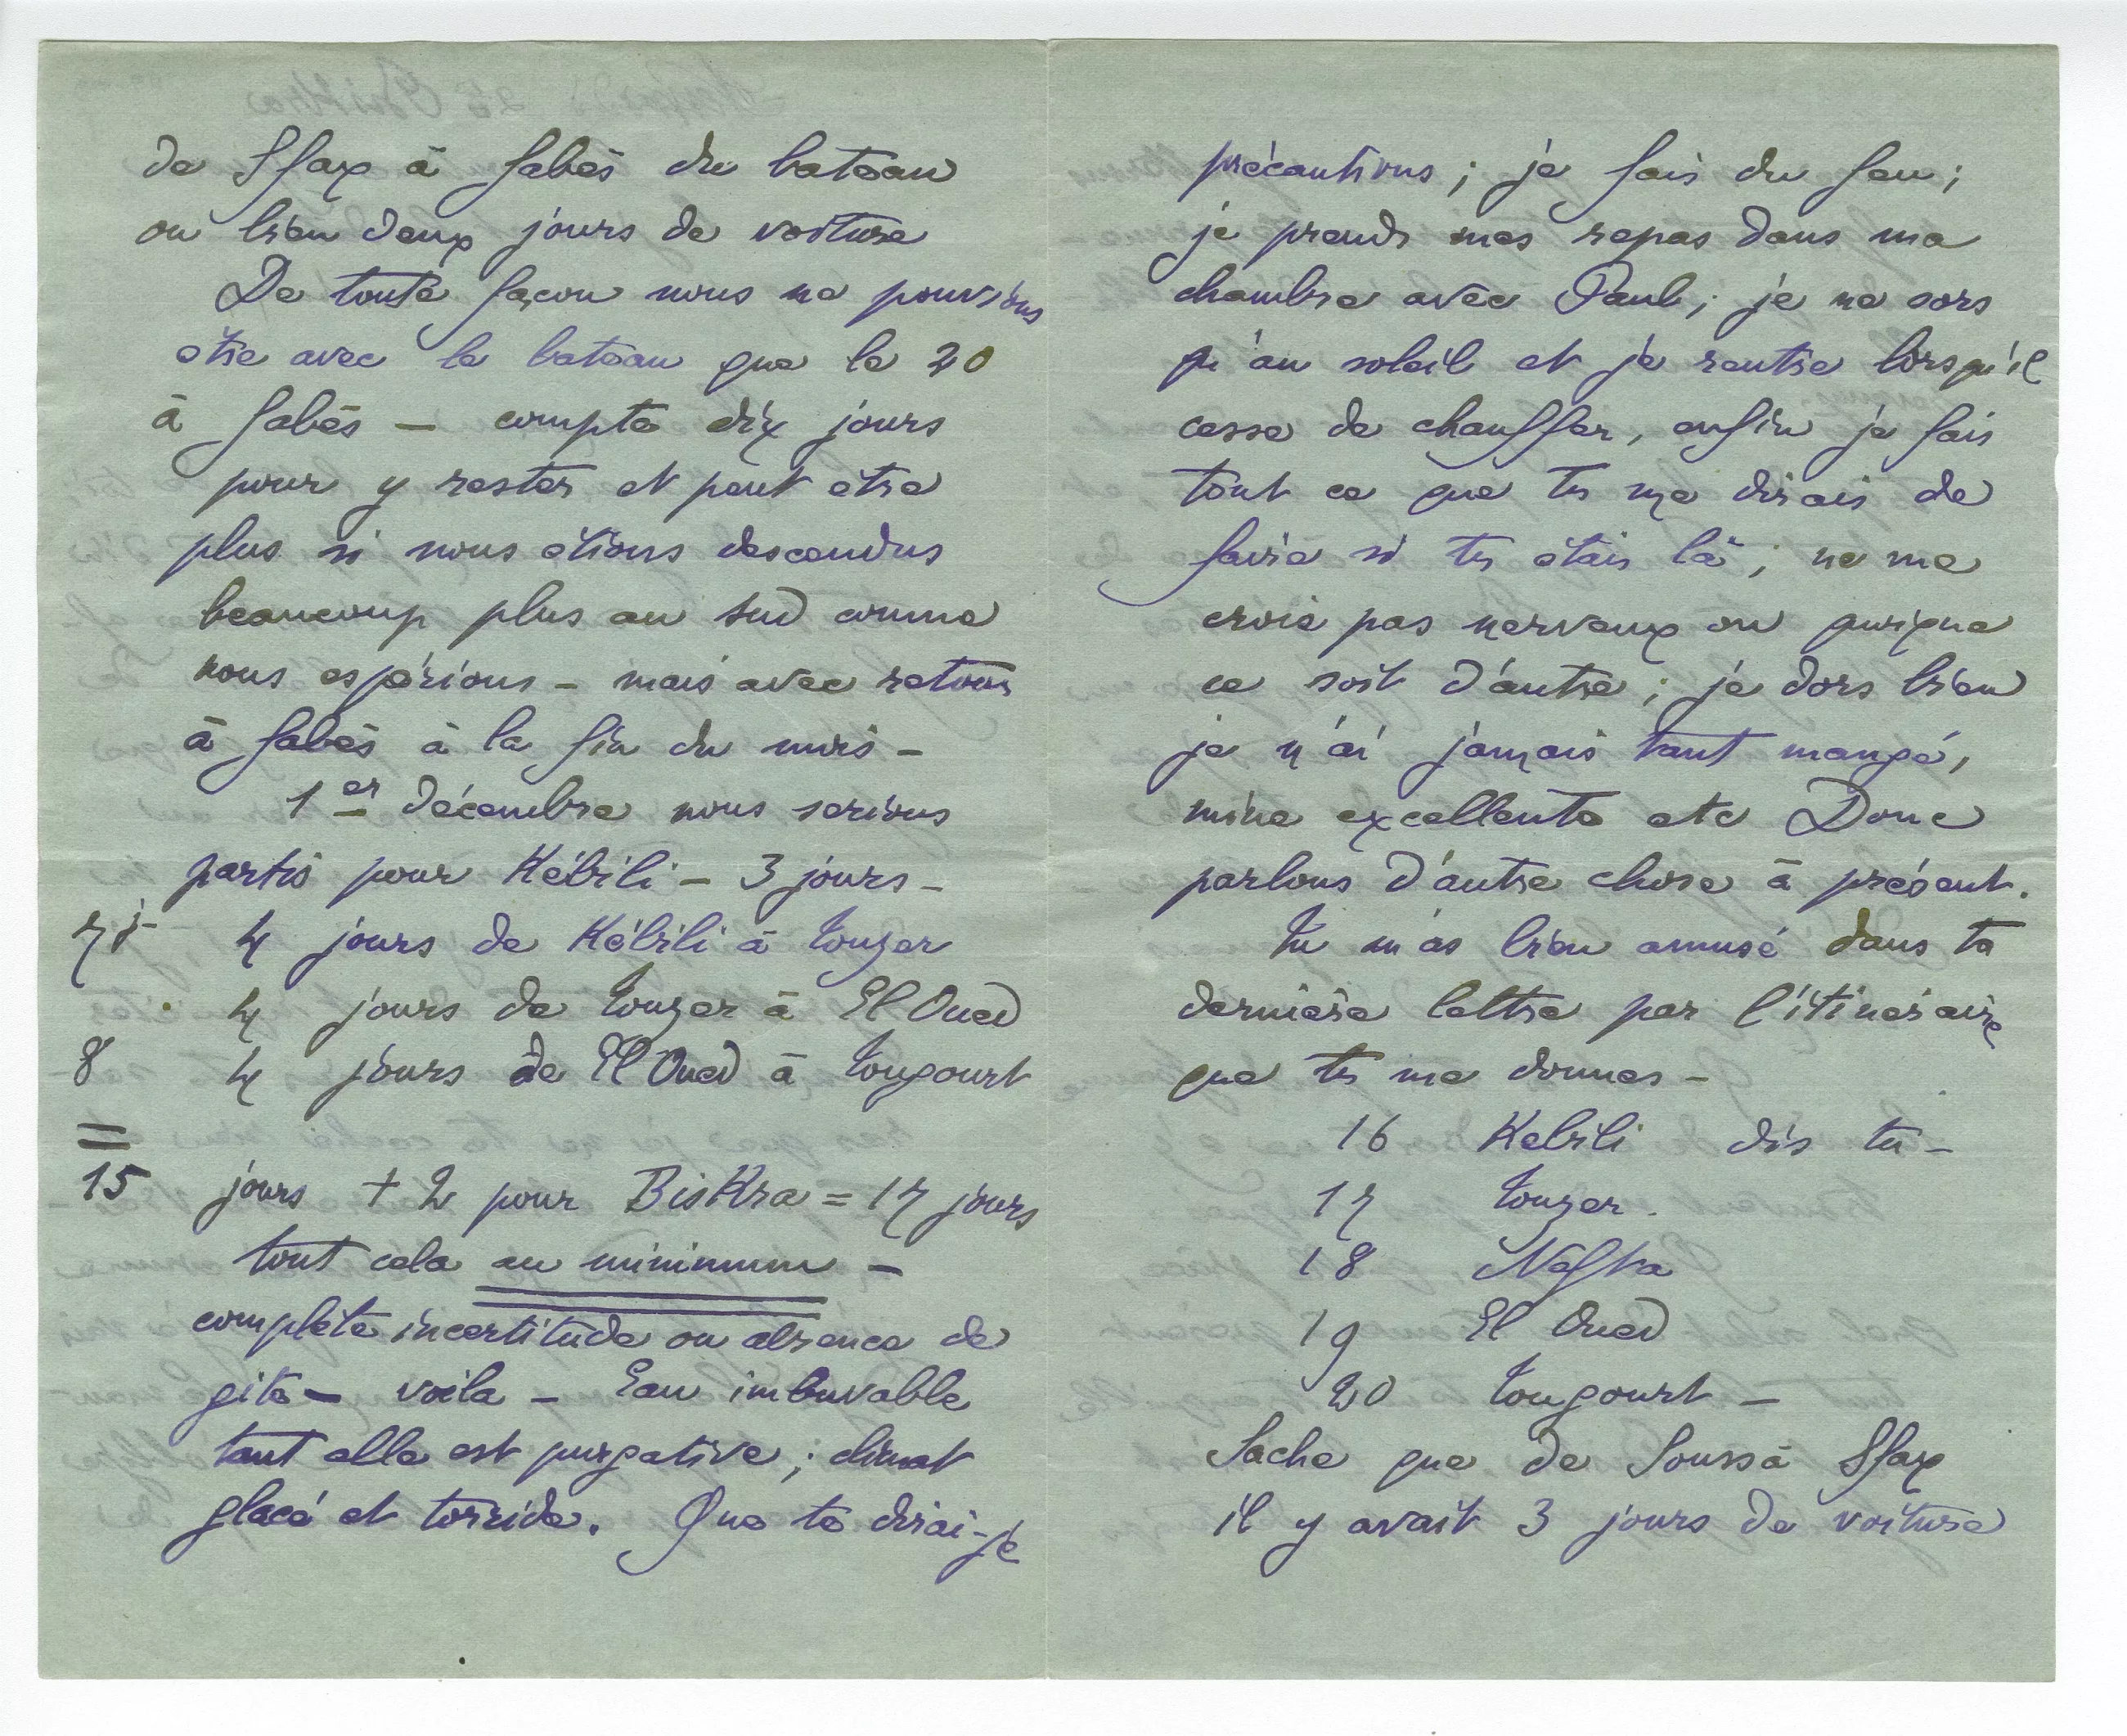 de Sfax à Gabès du bateau
ou bien deux jours de voiture
De toute façon nous ne pouvions
être avec le bateau que le 20
à Gabès — compte dix jours
pour y rester et peut être
plus si nous étions descendus
beaucoup plus au sud comme
nous espérions – mais avec retour
à Gabès à la fin du mois –
1er décembre nous serions
partis pour Kébili – 3 jours –
7 j – 4 jours de Kébili à Touzer
4 jours de Touzer à El Oued
8 4 jours de El Oued à Tougourt
=
15 jours + 2 pour BisKra = 17 jours
tout cela au minimum –
complète incertitude ou absence de
gite – voila – Eau imbuvable
tant elle est purgative ; climat
glacé et torride. Que te dirai-je
précautions ; je fais du feu ;
je prends mes repas dans ma
chambre avec Paul ; je ne sors
qu'au soleil et je rentre lorsqu'il
cesse de chauffer, enfin je fais
tout ce que tu me dirais de
faire si tu étais là ; ne me
crois pas nerveux ou quoique
ce soit d'autre ; je dors bien
je n'ai jamais tant mangé,
mine excellente etc Donc
parlons d'autre chose à présent.
Tu m'as bien amusé dans ta
dernière lettre par l'itineraire
que tu me donnes –
16 Kebili dis tu –
17 Touzer.
18 Nefta
19 El Oued
20 Tougourt –
Sache que de Souss à Sfax
il y avait 3 jours de voiture